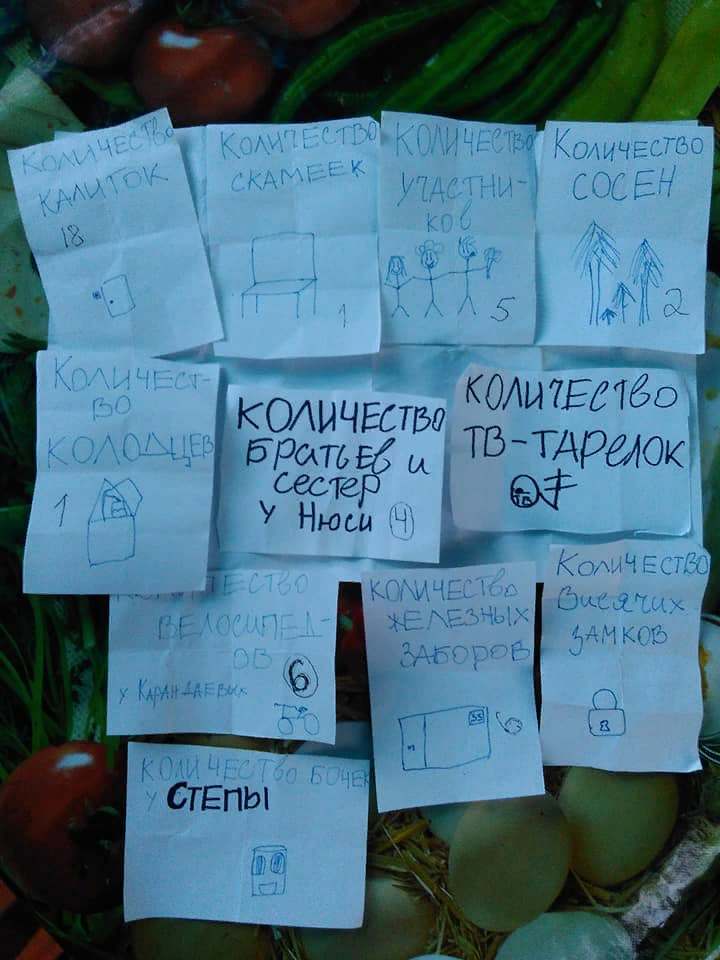 КОЛИЧЕСТВО
КАЛИТОК
18
КОЛИЧЕСТВО
СКАМЕЕК
1
КОЛИЧЕСТВО
УЧАСТНИ-
КОВ
5
КОЛИЧЕСТВО
СОСЕН
2
КОЛИЧЕСТ-
ВО
КОЛОДЦЕВ
1
КОЛИЧЕСТВО
Братьев и
сестер
у Нюси 4
КОЛИЧЕСТВО
ТВ-ТАРЕЛОК
КОЛИЧЕСТВО
ВЕЛОСИПЕД-
ОВ
6
у КАРАНДАЕВЫХ
КОЛИЧЕСТВО
ЖЕЛЕЗНЫХ
ЗАБОРОВ
КОЛИЧЕСТВО
Висячих
ЗАМКОВ
В
КОЛИЧЕСТВО БОЧЕК
у СТЕПЫ